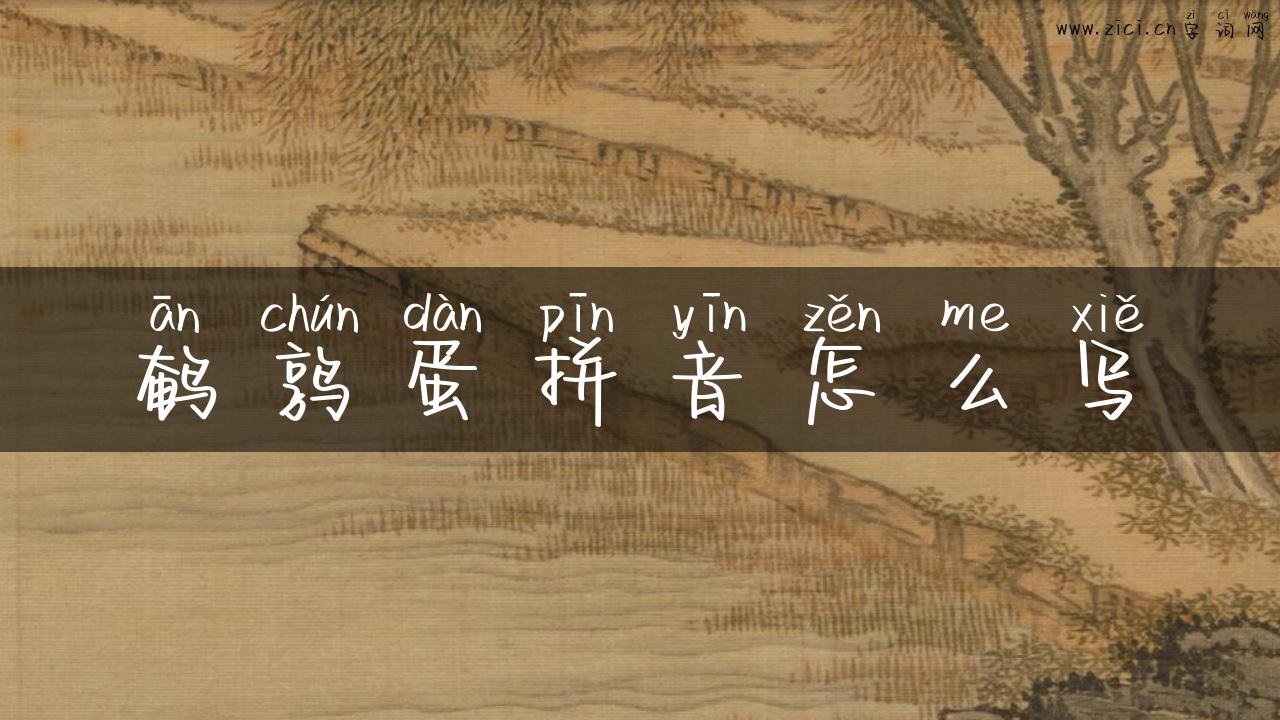 zì cí wǎng
www.zici.cn字词网
ān chún dàn pīn yīn zěn me xiě
鹌鹑蛋拼音怎么写